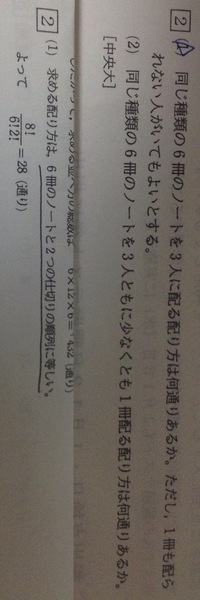 2 (1) 同じ種類の6冊のノートを3人に配る配り方は何通りあるか。ただし，1冊も配ら
れない人がいてもよいとする。
(2) 同じ種類の6冊のノートを3人ともに少なくとも1冊配る配り方は何通りあるか。
[中央大]
6×12×6=432 (通り)
2 (1) 求める配り方は，6冊のノートと2つの仕切りの順列に等しい。
よって 8!/6!2! =28 (通り)